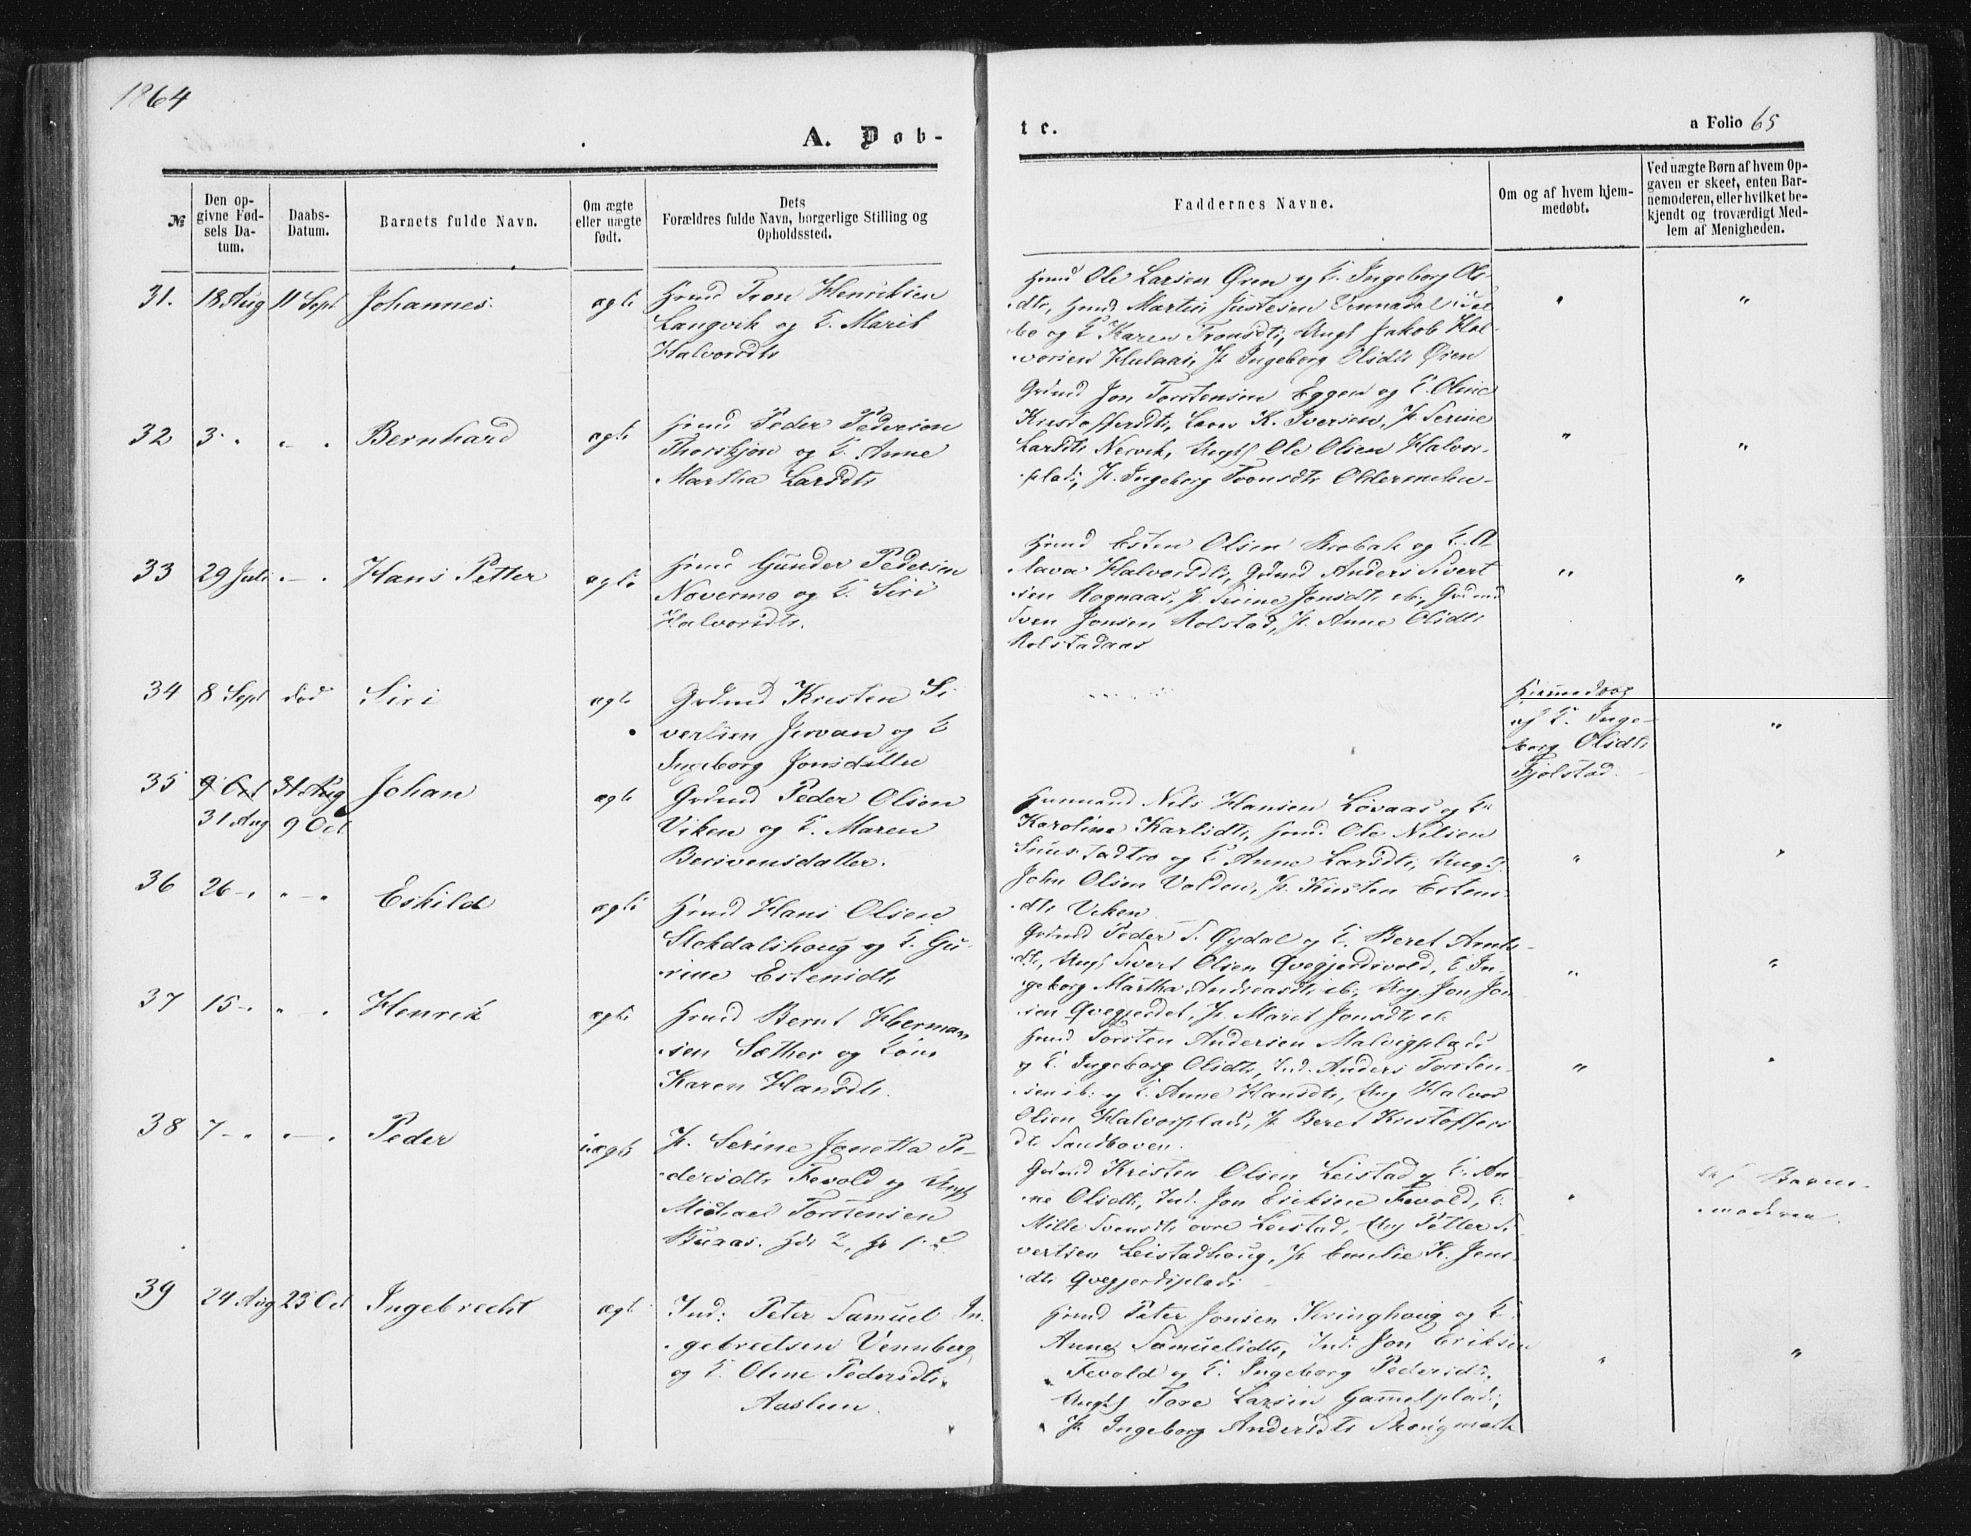 1864
A. Døb-
t e.
a Folio 65
№
Den op-
givne Fød-
sels Da-
tum.
Daabs-
Datum.
Barnets fulde Navn.
Om ægte
eller uægte
født.
Dets
Forældres fulde Navn, borgerlige Stilling og
Opholdssted.
Faddernes Navne.
Om og af hvem hjem-
medøbt.
Ved uægte Børn af hvem Op-
gaven er skeet, enten Bar-
nemoderen, eller hvilket be-
kjendt og troværdigt Med-
lem af Menigheden.
31. 18 Aug 11 Sept Johannes ægte
Hmd Tron Henriksen
Langvik og K. Marit
Halvorsdtr
Hmd Ole Larsen Øren og K. Ingeborg Ols
dtr, Hmd Martin Justesen
bo og K Karen Tronsdtr, Ungk Jakob Hal
vorsen Hulaas, P. Ingeborg Olsdtr Øren "
32 3 " " Bernhard ægte
Hmd Peder Pedersen
og K. Anne
Martha Larsdtr
Grdmd Jon Torstensen Eggen og K. Oline
Kristoffersdtr, K. Iversen, P. Serine
Larsdtr Nervik, Ungk Ole Olsen Halvor-
plads, P. Ingeborg Tronsdtr " "
33 29 Juli " - " Hans Petter ægte
Hmd Gunder Pedersen
Novermo og K. Siri
Halvorsdtr.
Hmd Esten Olsen Brobak og K.
Halvorsdtr, Grdmd Anders Sivert
sen Rognaas, P. Serine Jonsdtr ib, Grdmd
Sven Jonsen Rolstad, P. Anne Olsdtr
Rolstadaas " "
34 8 Sept død Siri ægte
Grdmd Kristen Si
vertsen Jervan og K
Ingeborg Jonsdatter
Hjemmedøbt
af K. Inge-
borg Olsdtr
Fjølstad. "
35 9 Oct 31 Aug Johan ægte
31 Aug 9 Oct
Grdmd Peder Olsen
Viken og K. Maren
Huusmand Nils Hansen Løvaas og K.
Karoline Karlsdtr, Hmd. Ole Nilsen
og K Anne Larsdtr, Ungk
John Olsen Volden, P. Kirsten Estens
dtr Viken " "
36 26 - " " - " Eskild ægte
Hmd Hans Olsen
Stokdalshoug og K. Gu-
rine Estensdtr
Grdmd Peder S. Øydal og K. Beret Arnts-
dtr, Ungk Sivert Olsen Qvegjerdsvold, K In-
geborg Martha Andreasdtr ib, Ung Jon Jon
sen Qvegjerdet, P. Maret Jonsdtr ib " "
37 15 - " " " Henrik ægte
Hmd Bernt Herman
sen Sæther og Kone
Karen Hansdtr.
Hmd Torsten Andersen Malvigplads
og K. Ingeborg Olsdtr, Ind. Anders Torsten-
sen ib. og K. Anne Hansdtr, Ung Halvor
Olsen Halvorsplads, P Beret Kristoffers
dtr Sandhoven. " "
38 7 - " " - " Peder uægte
P. Serine Jonetta Pe-
dersdtr Fevold og Ungk
Michael Torstensen
Buraas.
Grdmd Kristen Olsen Leistad og K. An
ne Olsdtr, Ind. Jon Eriksen Fevold, K.
Mille Svensdtr øvre Leistad, Ung Petter Si
vertsen Leistadhoug, P. Emelie K. Jens
dtr Qvegjerdsplads "
af Barne-
moderen.
39 24 Aug 23 Oct Ingebrecht ægte
Ind: Peter Samuel In
gebretsen Vennberg
og K. Oline Pedersdtr
Aaslien.
Hmd Peter Jonsen Kringhoug og K.
Anne Samuelsdtr, Ind. Jon Eriksen
Fevold og K. Ingeborg Pedersdtr,
Ungk Tore Larsen Gammelplads,
P. Ingeborg Andersdtr " "